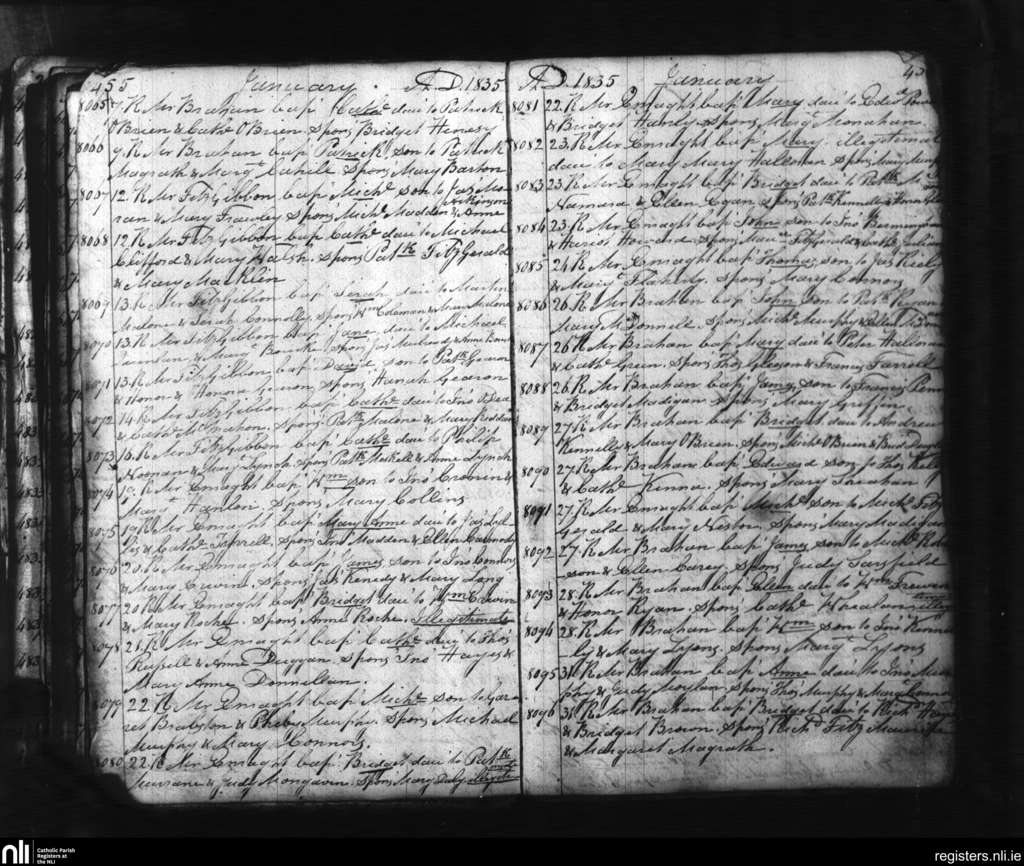 455 January A.D. 1835
8065 7. R Mr Brahan bap' Cathe dau' to Patrick
O'Brien & Cathe O'Brien Spons Bridget Henesy
8066 9. R Mr Brahan bap' Patrick, son to Patrick
Magrath & Mary Cahile Spons Mary Barton
8067 12. R Mr FitzGibbon bap' Michl son to Jas Mo-
Atkinson
ran & Mary Frawley Spons Michl Madden & Anne
8068 12. R Mr FitzGibbon bap' Cathe dau' to Michael
Clifford & Mary Walsh. Spons Patk FitzGerald
& Mary Macklin
8069 13. R Mr FitzGibbon bap' Sarah dau' to Martin
Malone & Sarah Connolly Spons Wm Coleman & Mary Malone
8070 13. R Mr FitzGibbon bap' Jane dau' to Michael
& Mary Bourke Spons Jas & Anne
8071 13. R Mr FitzGibbon bap' David son to Patk Gearon
& Honor Spons Hanah Gearon
8072 14. R Mr FitzGibbon bap' Cathe dau' to Jno O'Dea
& Cathe McMahon. Spons Patk Malone & Mary
8073 16. R Mr FitzGibbon bap' Cathe dau' to Philip
Noonan & Mary Lynch Spons Patk & Anne Lynch
8074 19. R Mr Enraght bap' Wm son to Jno Cronin &
Mary Hanlon, Spons Mary Collins
8075 19. R Mr Enraght bap' Mary Anne dau' to Jas
& Cathe Farrell. Spons Jno Madden & Ellen
8076 20. R Mr Enraght bap' James son to Jno Connors
& Mary Spons Jas Kenedy & Mary Long
8077 20. R Mr Enraght bap' Bridget dau' to Wm
& Mary Roche. Spons Anne Roche. Illegitimate
8078 21. R Mr Enraght bap' Cathe dau' to Thos
Russell & Anne Duggan. Spons Jno Hayes &
Mary Anne Donnellan.
8079 22. R Mr Enraght bap' Michl son to Gar-
ret Brabston & Phebe Murphy. Spons Michael
Murphy & Mary Connors.
8080 22. R Mr Enraght bap' Bridget dau' to Patk
& Judy Mongavin. Spons Mary
A.D. 1835 January
8081 22. R Mr Enraght bap' Mary dau' to Edwd
& Bridget Hanly Spons Mary Monahan
8082 23. R Mr Enraght bap' Mary, illegitimate
dau' to Mary Mary Halloran Spons Mary
8083 23. R Mr Enraght bap' Bridget dau' to Patk Mc
Namara & Ellen Egan Spons Patk Kennelly & Honor
8084 23. R Mr Enraght bap' John son to Jno
& Hariot Howard. Spons FitzGerald & Cathe
8085 24. R Mr Enraght bap' Thomas son to Jas Kiely
& Mary Flaherty. Spons Mary Connors
8086 26. R Mr Brahan bap' John son to Patk
Mary McDonnell. Spons Michl Murphy & Ellen
8087 26. R Mr Brahan bap' Mary dau' to Peter Halloran
& Cathe Green. Spons Thos Gleeson & Frances Farrell
8088 26. R Mr Brahan bap' James son to Francis
& Bridget Madigan Spons Mary Griffin.
8089 27. R Mr Brahan bap' Bridget dau' to Andrew
Kennelly & Mary O'Brien. Spons Michl O'Brien & Bridt
8090 27. R Mr Brahan bap' Edward son to Thos
& Cathe Kenna. Spons Mary
8091 27. R Mr Enraght bap' Michl son to Michl Fitz
gerald & Mary Neston. Spons Mary Madigan
8092 27. R Mr Brahan bap' James son to Michl
son & Ellen Carey Spons Judy Sarsfield
8093 28. R Mr Brahan bap' Ellen dau' to Wm
& Honor Ryan. Spons Cathe
8094 28. R Mr Brahan bap' Wm son to Jno Kenne-
ly & Mary Lyons. Spons Mary Lyons
8095 31. R Mr Brahan bap' Anne dau' to Jno Mur-
phy & Judy Moylan. Spons Thos Murphy & Mary Connors
8096 31. R Mr Brahan bap' Bridget dau' to Richd
& Bridget Brown. Spons Richd FitzMaurice
& Margaret Magrath.
nli Catholic Parish
Registers at
the NLI
registers.nli.ie